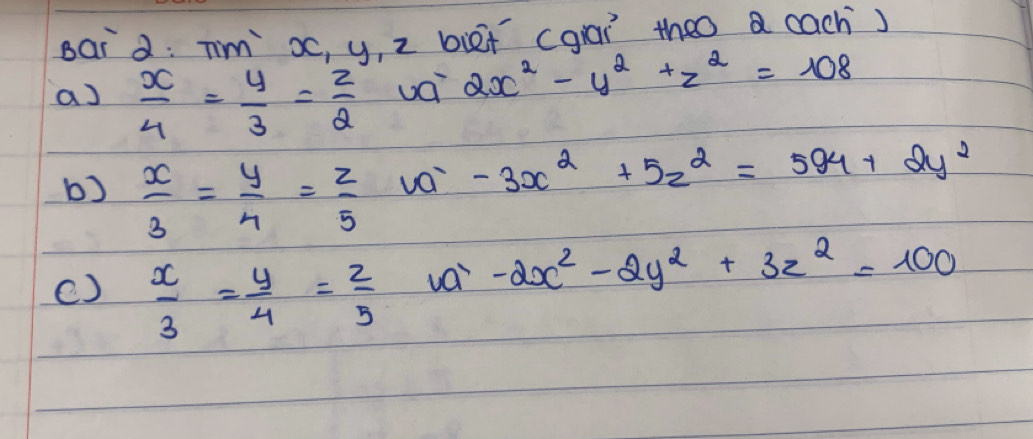 Bài 2: Tìm x, y, z biết (giải theo 2 cách)
a) x/4 = y/3 = z/2 và 2x² - y² + z² = 108
b) x/3 = y/4 = z/5 và -3x² + 5z² = 594 + 2y²
c) x/3 = y/4 = z/5 và -2x² - 2y² + 3z² = 100